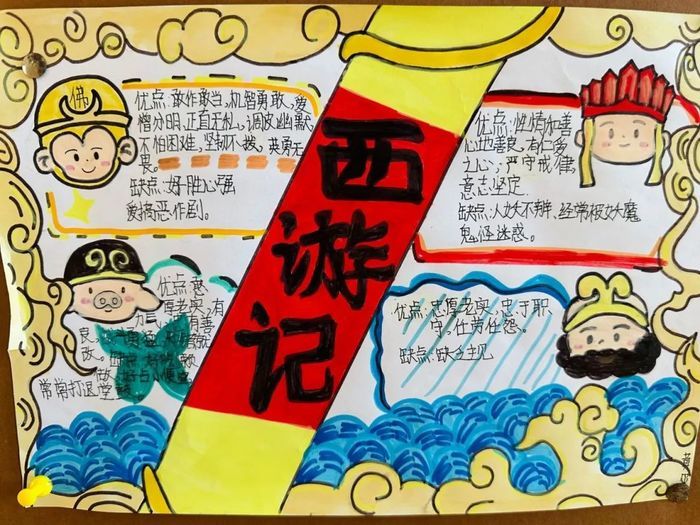 西游记
佛
优点:敢作敢当,机智勇敢,爱
憎分明,正直无私,调皮幽默
不怕困难,坚韧不拔,英勇无
畏。
缺点:好胜心强
爱搞恶作剧。
优点:性情和善
心地善良,有仁爱
之心;严守戒律,
意志坚定
缺点:人妖不辨、经常被妖魔
鬼怪迷惑。
优点:憨
厚老实,有
力气
良,
敌。
做
常常打退堂鼓
优点:忠厚老实,忠于职
守,任劳任怨。
缺点:缺乏主见